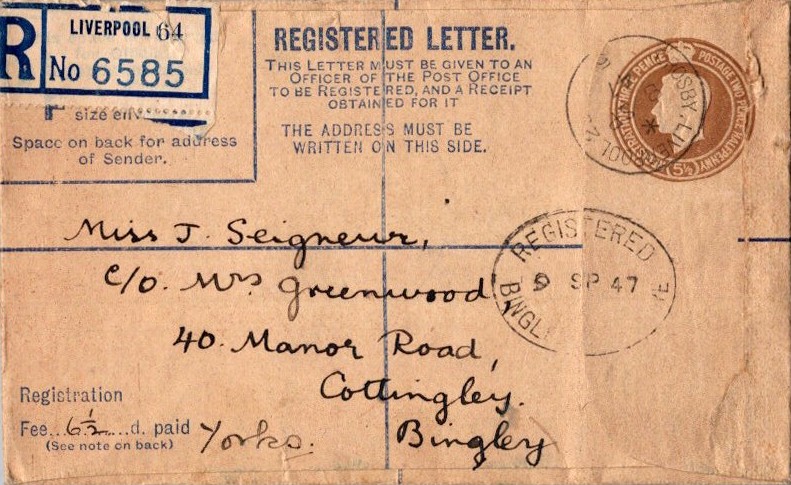 R
LIVERPOOL 64
No 6585
size
Space on back for address
of Sender.
REGISTERED LETTER.
THIS LETTER MUST BE GIVEN TO AN
OFFICER OF THE POST OFFICE
TO BE REGISTERED, AND A RECEIPT
OBTAINED FOR IT
THE ADDRESS MUST BE
WRITTEN ON THIS SIDE.
POSTAGE TWO PENCE HALFPENNY
5½
Miss J. Seigneur,
c/o. Mrs Greenwood
40. Manor Road,
Cottingley.
Bingley
Yorks.
REGISTERED
9 SP 47
Registration
Fee...6½...d. paid
(See note on back)